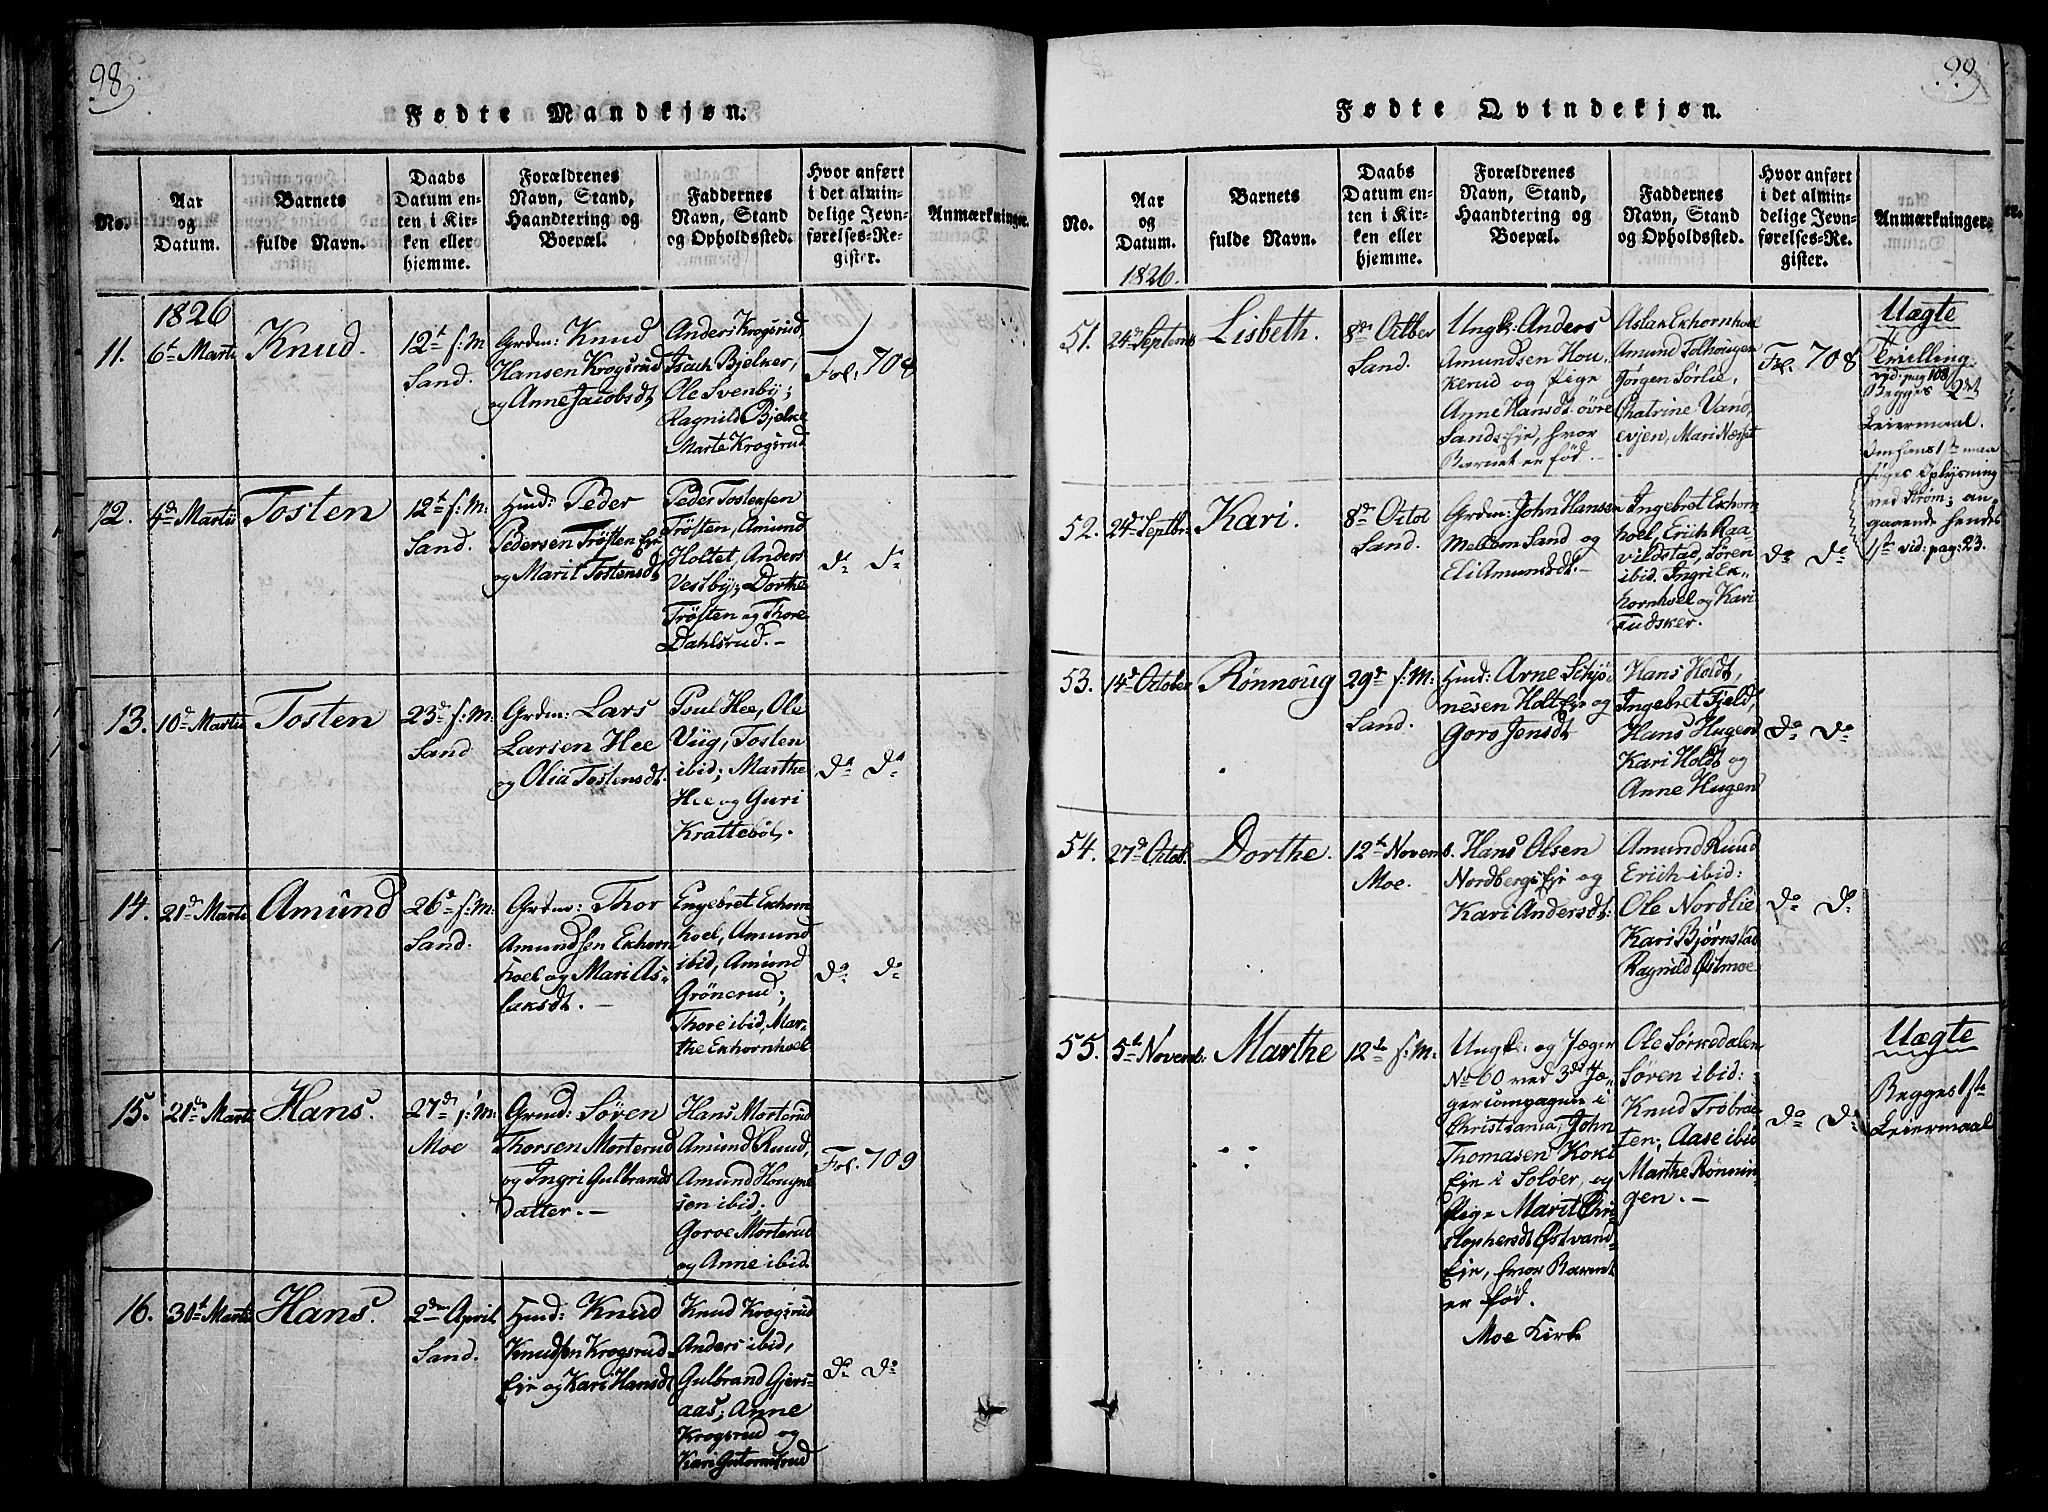 98.
Fødte Mandkjøn.
No.
Aar
og
Datum.
Barnets
fulde Navn.
Daabs
Datum en-
ten i Kir-
ken eller
hjemme.
Forældrenes
Navn, Stand,
Haandtering og
Boepæl.
Faddernes
Navn, Stand
og Opholdssted.
Hvor anført
i det almin-
delige Jevn-
førelses-Re-
gister.
Anmærkninger.
1826
11.
6t Marti
Knud.
12t f: M
Sand.
Grdm: Knud
Hansen Krogsrud
og Anne Jacobsdt
Anders Krogsrud,
Isach Bjelker,
Ole Svenby;
Ragnild Bjelke
Marte Krogsrud
Fol: 708
12.
4d Martii
Tosten
12t f: M:
Sand.
Huusd: Peder
Pedersen Trøsten Eje
og Marit Tostensdt
Peder Tostensen
Trøsten, Amund
Holtet, Anders
Vestby; Dorthe
Trøsten og Thore
Dahlsrud. -
do do
13.
10d Marti
Tosten
23d f: M:
Sand
Grdm: Lars
Larsen Hee
og Olia Tostensdt.
Poul Hee, Ole
Viig, Tosten
ibid; Marthe
Hee og Guri
Krattebøl.
do do
14.
21d Marti
Amund
26d f: M:
Sand.
Grdm: Thor
Amundsen Exhorn
hoel og Mari As-
laksdt. -
Engebret Exhorn
hoel, Amund
ibid, Amund
Grønerud;
Thore ibid, Mar-
the Exhornhoel
do do
15.
21d Marti
Hans.
27d f: M:
Moe
Grmd: Søren
Thorsen Morterud
og Ingri Gulbrands
datter. -
Hans Morterud
Amund Ruud,
Amund Hougne
sen ibid;
Goroe Morterud
og Anne ibid.
Fol. 709
16.
30t Marti
Hans.
2den April
Sand.
Huusd: Knud
Knudsen Krogsrud
Eje og Kari Hansdt
Knud Krogsrud
Anders ibid,
Gulbrand Gjeris-
aas; Anne
Krogsrud og
Kari Gutormsrud
do do
99.
Fødte Qvindekjøn.
No.
Aar
og
Datum.
1826.
Barnets
fulde Navn.
Daabs
Datum en-
ten i Kir-
ken eller
hjemme.
Forældrenes
Navn, Stand,
Haandtering og
Boepæl.
Faddernes
Navn, Stand
og Opholdssted.
Hvor anført
i det almin-
delige Jevn-
førelses-Re-
gister.
Anmærkninger.
51.
24d Septemb
Lisbeth.
8de Octber
Sand.
Ungk: Anders
Amundsen Hou-
kerud og Pige
Anne Hansdt. øvre
Sands Eje, hvor
Barnet er fød. -
Aslak Exhornhoel
Amund Tolhougen
Jørgen Sørlie,
Chatrine Vand,
evjen, Mari Næsset
Fol. 708
Uægte
Tvilling
vid: pag 108
Begges 2det
Leiermaal.
Om hans 1ste maa
søges Oplysning
ved Strøm; an-
gaaende hendes
1ste vid: pag: 23.
52.
24d Septbr
Kari.
8de Octob
Sand.
Grdm: John Hansen
Mellem Sand og
Eli Amundsdt. -
Ingebret Exhorn
hoel, Erich Raa-
vildstad, Søren
ibid. Ingri Ex-
hornhoel og Kari
Fudsker.
do do
53.
14d October
Rønnoug
29d f: M:
Sand.
Huusd: Arne Schjø-
nesen Holt Eje og
Goro Jensdt
Hans Holdt,
Ingebret Fjeld,
Hans Hugen
Kari Holdt og
Anne Hugen
do do
54.
27d Octob.
Dorthe.
12t Novemb.
Moe.
Hans Olsen
Nordbergs Eje og
Kari Andersdt:
Amund Ruud
Erich ibid:
Ole Nordlie
Kari Bjørnstad
Ragnild Østmoe
do do
55.
5t Novemb:
Marthe
12te f: M:
Ungk: og Jæger
No 60 ved 3de Jæ-
gercompagnie i
Christiania, John
Thomasen Koxi
Eje i Soløer, og
Pige Marit Chri-
stophersdt Østvand-
Eje, hvor Barnet
er fød.
Moe Kirke
Ole Sørkedalen
Søren ibid:
Knud Trøbraa-
ten; Aase ibid
Marthe Rønnin-
gen. -
do do
Uægte
Begges 1ste
Leiermaal